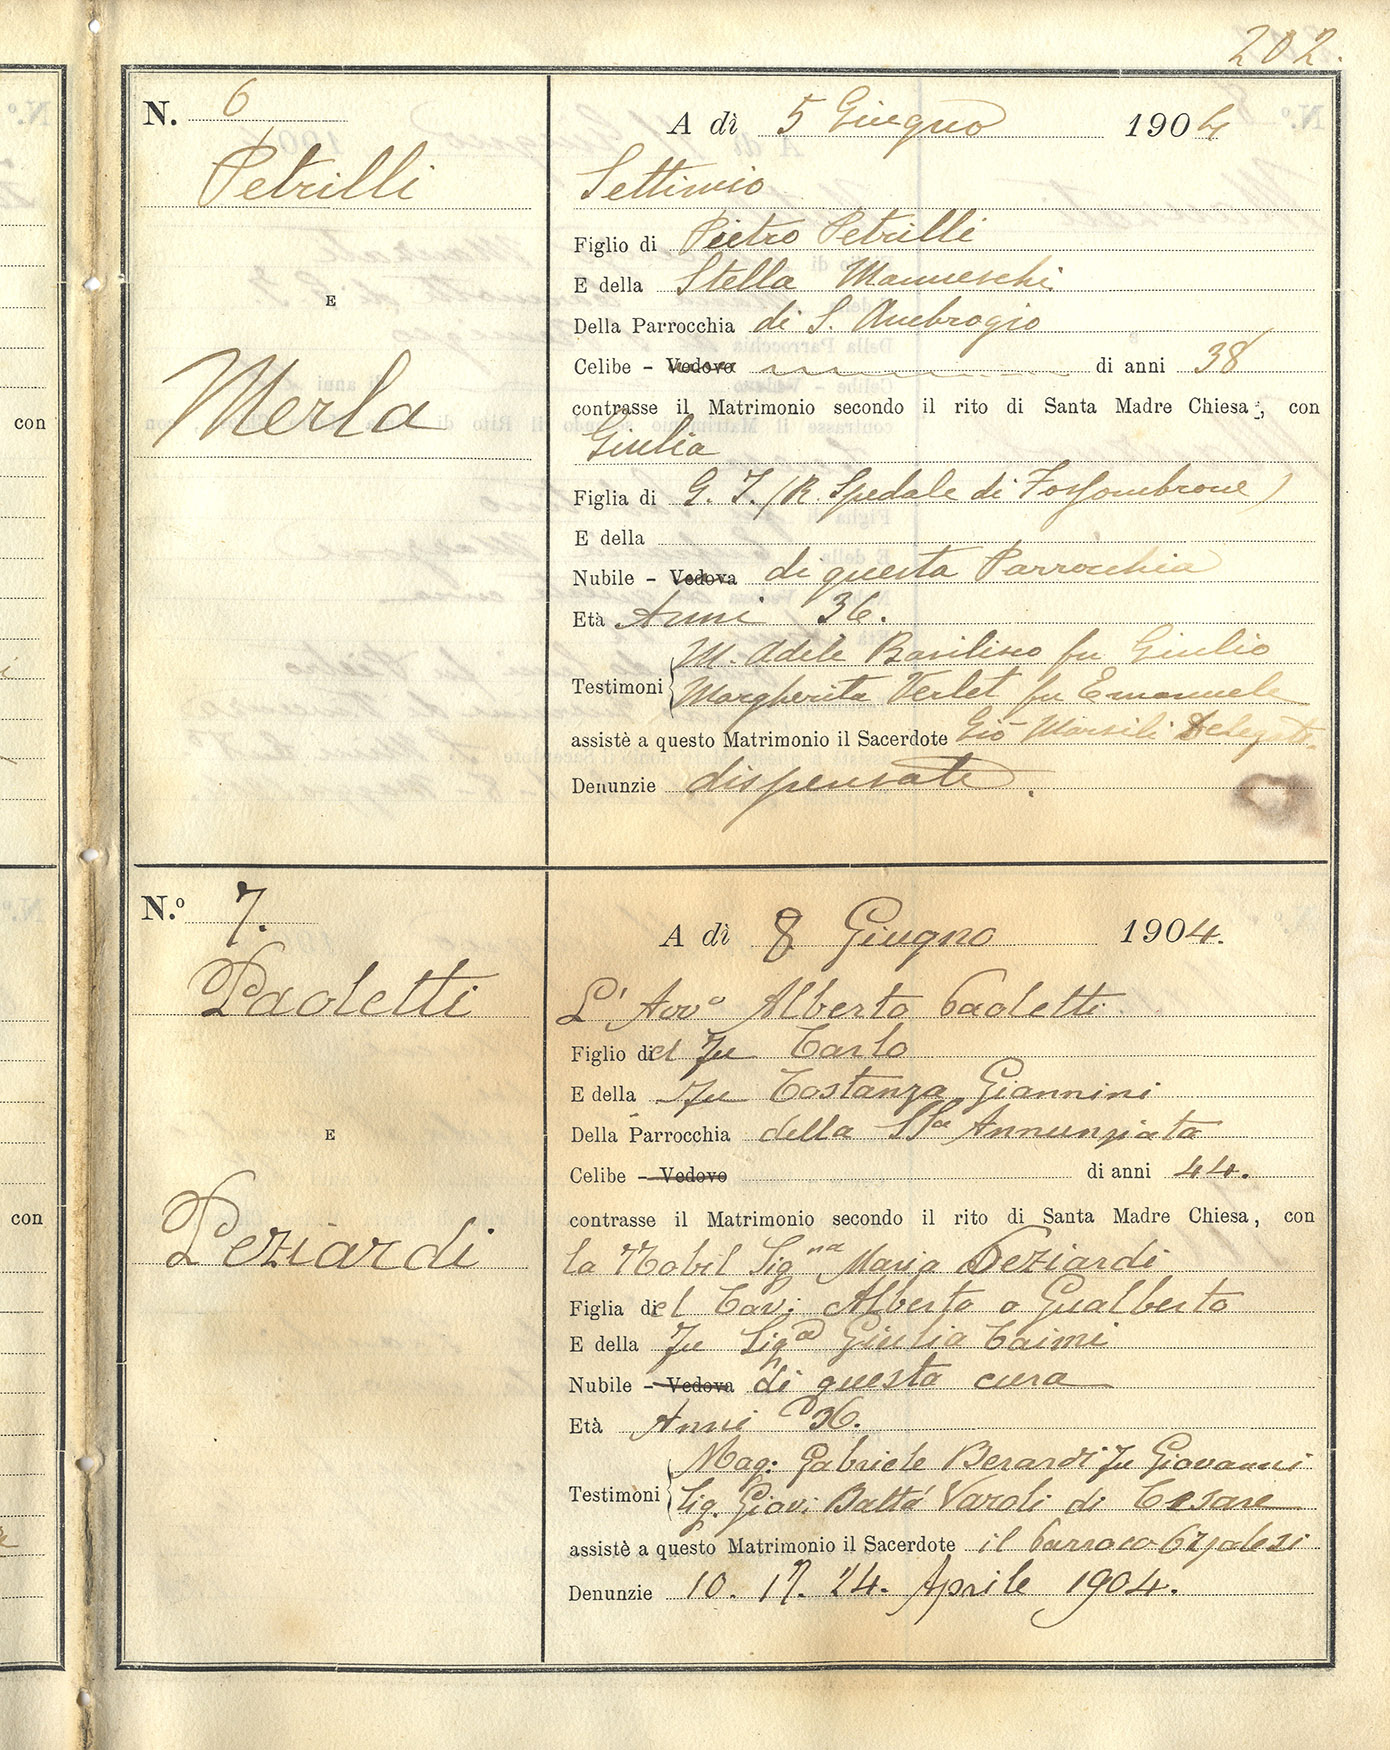 202.
N. 6
Petrilli
E
Merla
A dì 5 Giugno 1904
Settimio
Figlio di Pietro Petrilli
E della Stella Manneschi
Della Parrocchia di S. Ambrogio
Celibe - Vedovo di anni 38
contrasse il Matrimonio secondo il rito di Santa Madre Chiesa, con
Giulia
Figlia di G. I. (R. Spedale di Fossombrone)
E della
Nubile - Vedova di questa Parrocchia
Età Anni 36.
M. Adele Basilisco fu Giulio
Testimoni Margherita Verlet fu Emanuele
assistè a questo Matrimonio il Sacerdote Gio Marsili Delegato.
Denunzie dispensate.
N.º 7.
Paoletti
E
Peziardi
A dì 8 Giugno 1904.
L' Avvº Alberto Paoletti.
Figlio del fu Carlo
E della fu Costanza Giannini
Della Parrocchia della SSa Annunziata
Celibe - Vedovo di anni 44.
contrasse il Matrimonio secondo il rito di Santa Madre Chiesa, con
la Nobil Signa Maria Peziardi
Figlia del Cav: Alberto o Gualberto
E della fu Siga Giulia Caimi
Nubile - Vedova di questa cura
Età Anni 36.
Mag: Gabriele Berardi fu Giovanni
Testimoni Sig. Giov: Batta Varoli di Cesare
assistè a questo Matrimonio il Sacerdote il Parroco
Denunzie 10. 17. 24. Aprile 1904.
con
con